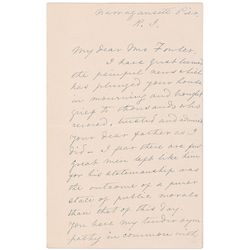 Narragansett Pier,
R. I.
My dear Mrs Fowler
I have just learned
the painful news which
has plunged your house
in mourning and brought
grief to thousands who
revered, trusted and admired
your dear father as I
did - I fear there are few
great men left like him
for his statesmanship was
the outcome of a purer
state of public morals
than that of this day.
You have my tender sym
pathy in common with